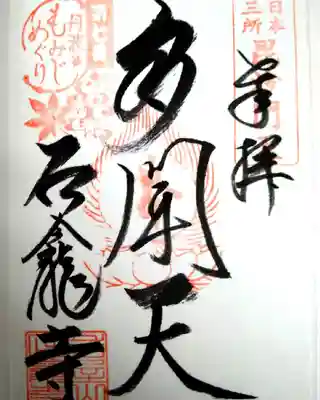 日本
三所
奉拝
多聞天
丹波の
もみじ
めぐり
石龕寺